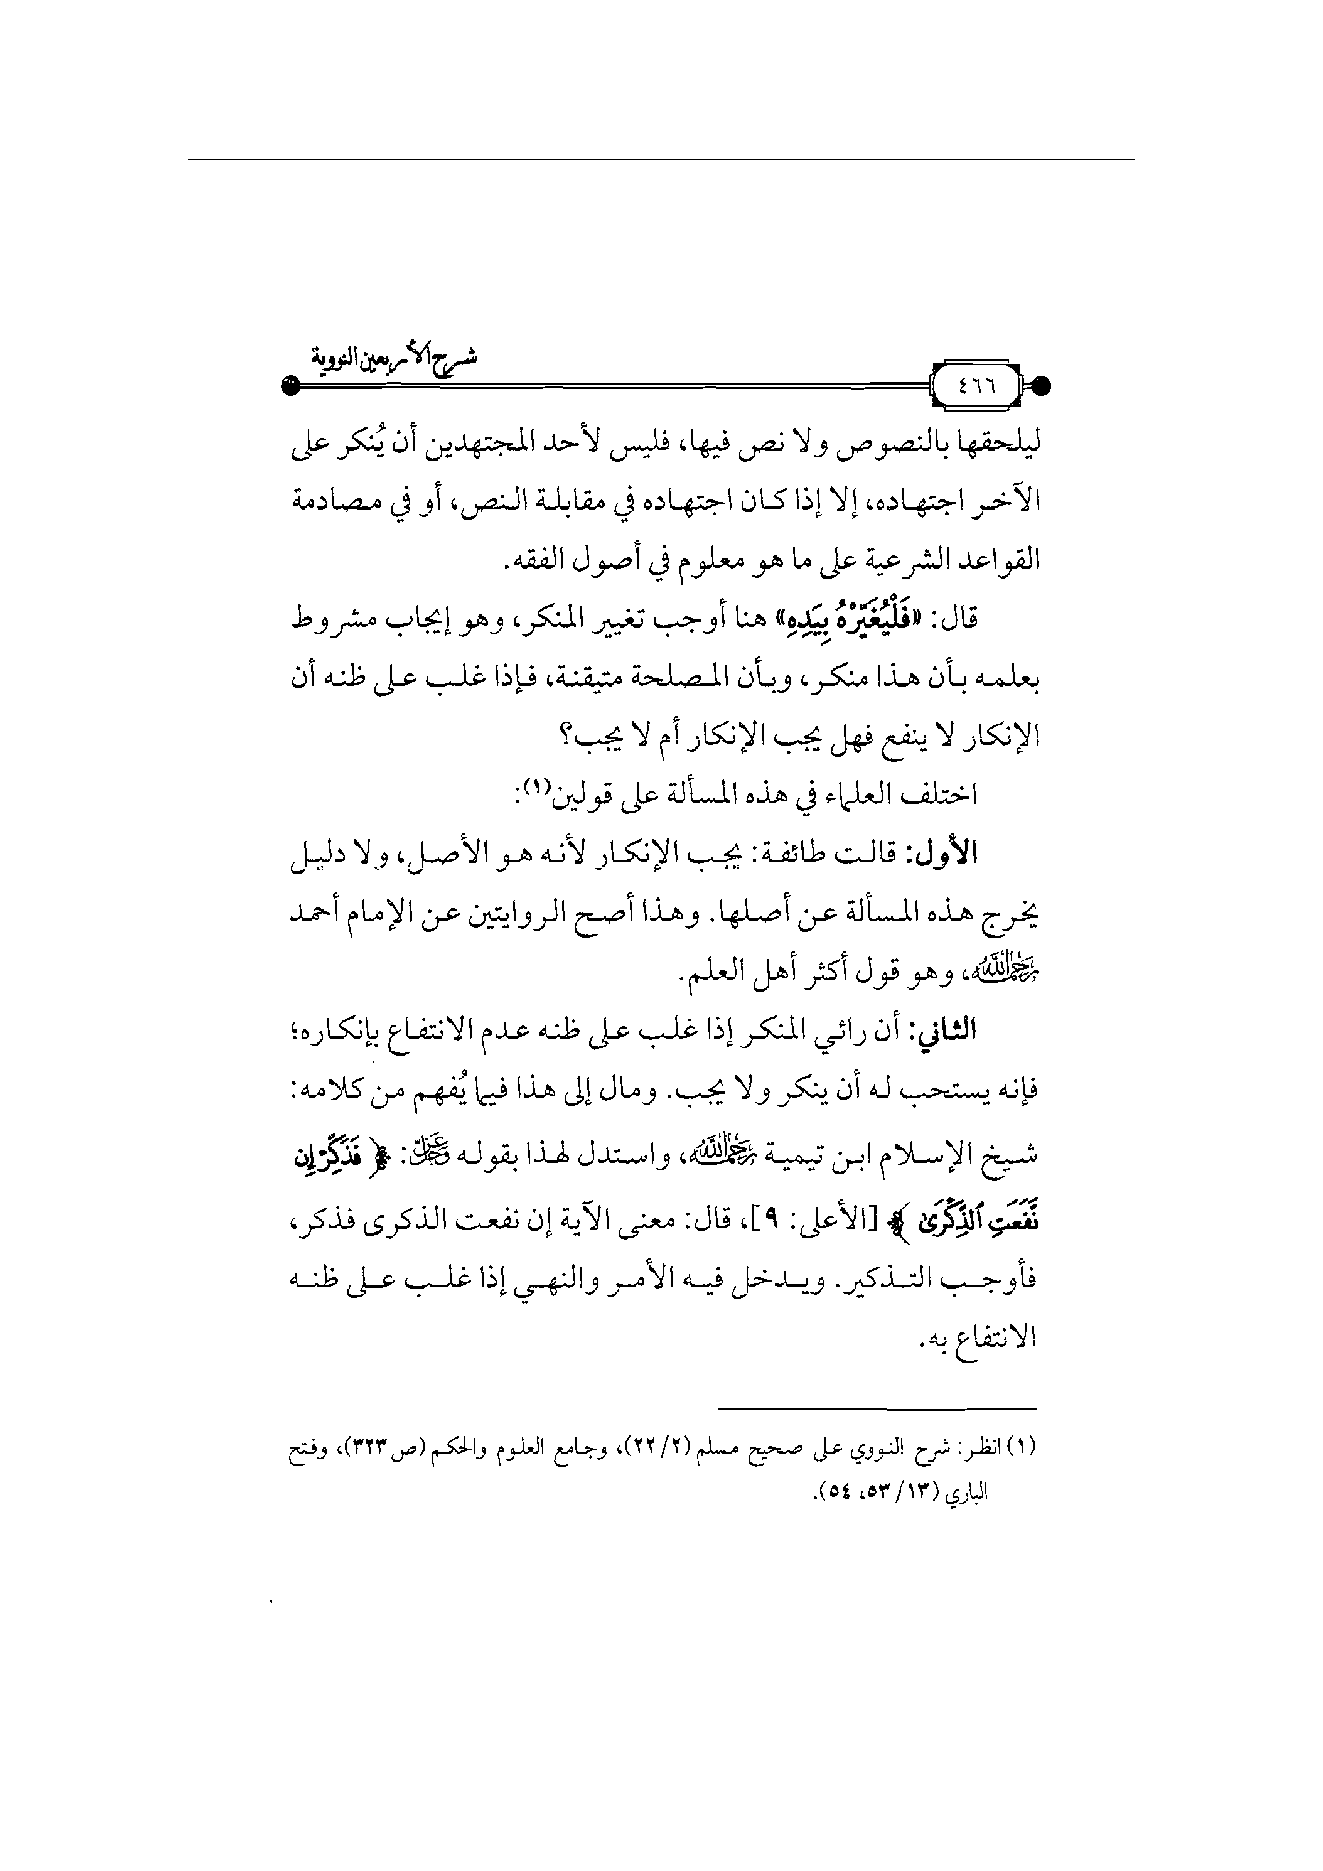 شرح الأربعين النووية
٤٦٦
ليلحقها بالنصوص ولا نص فيها، فليس لأحد المجتهدين أن يُنكر على
الآخر اجتهاده، إلا إذا كان اجتهاده في مقابلة النص، أو في مصادمة
القواعد الشرعية على ما هو معلوم في أصول الفقه.
قال: «فَلْيُغَيِّرْهُ بِيَدِهِ» هنا أوجب تغيير المنكر، وهو إيجاب مشروط
بعلمه بأن هذا منكر، وبأن المصلحة متيقنة، فإذا غلب على ظنه أن
الإنكار لا ينفع فهل يجب الإنكار أم لا يجب؟
اختلف العلماء في هذه المسألة على قولين(١):
الأول: قالت طائفة: يجب الإنكار لأنه هو الأصل، ولا دليل
يخرج هذه المسألة عن أصلها. وهذا أصح الروايتين عن الإمام أحمد
رحمه الله، وهو قول أكثر أهل العلم.
الثاني: أن رائي المنكر إذا غلب على ظنه عدم الانتفاع بإنكاره؛
فإنه يستحب له أن ينكر ولا يجب. ومال إلى هذا فيما يُفهم من كلامه:
شيخ الإسلام ابن تيمية رحمه الله، واستدل لهذا بقوله عز وجل: ﴿ فَذَكِّرْ إِن
نَّفَعَتِ ٱلذِّكْرَىٰ ﴾ [الأعلى: ٩]، قال: معنى الآية إن نفعت الذكرى فذكر،
فأوجب التذكير. ويدخل فيه الأمر والنهي إذا غلب على ظنه
الانتفاع به.
(١) انظر: شرح النووي على صحيح مسلم (٢/ ٢٢)، وجامع العلوم والحكم (ص٣٢٣)، وفتح
الباري (١٣/ ٥٣، ٥٤).